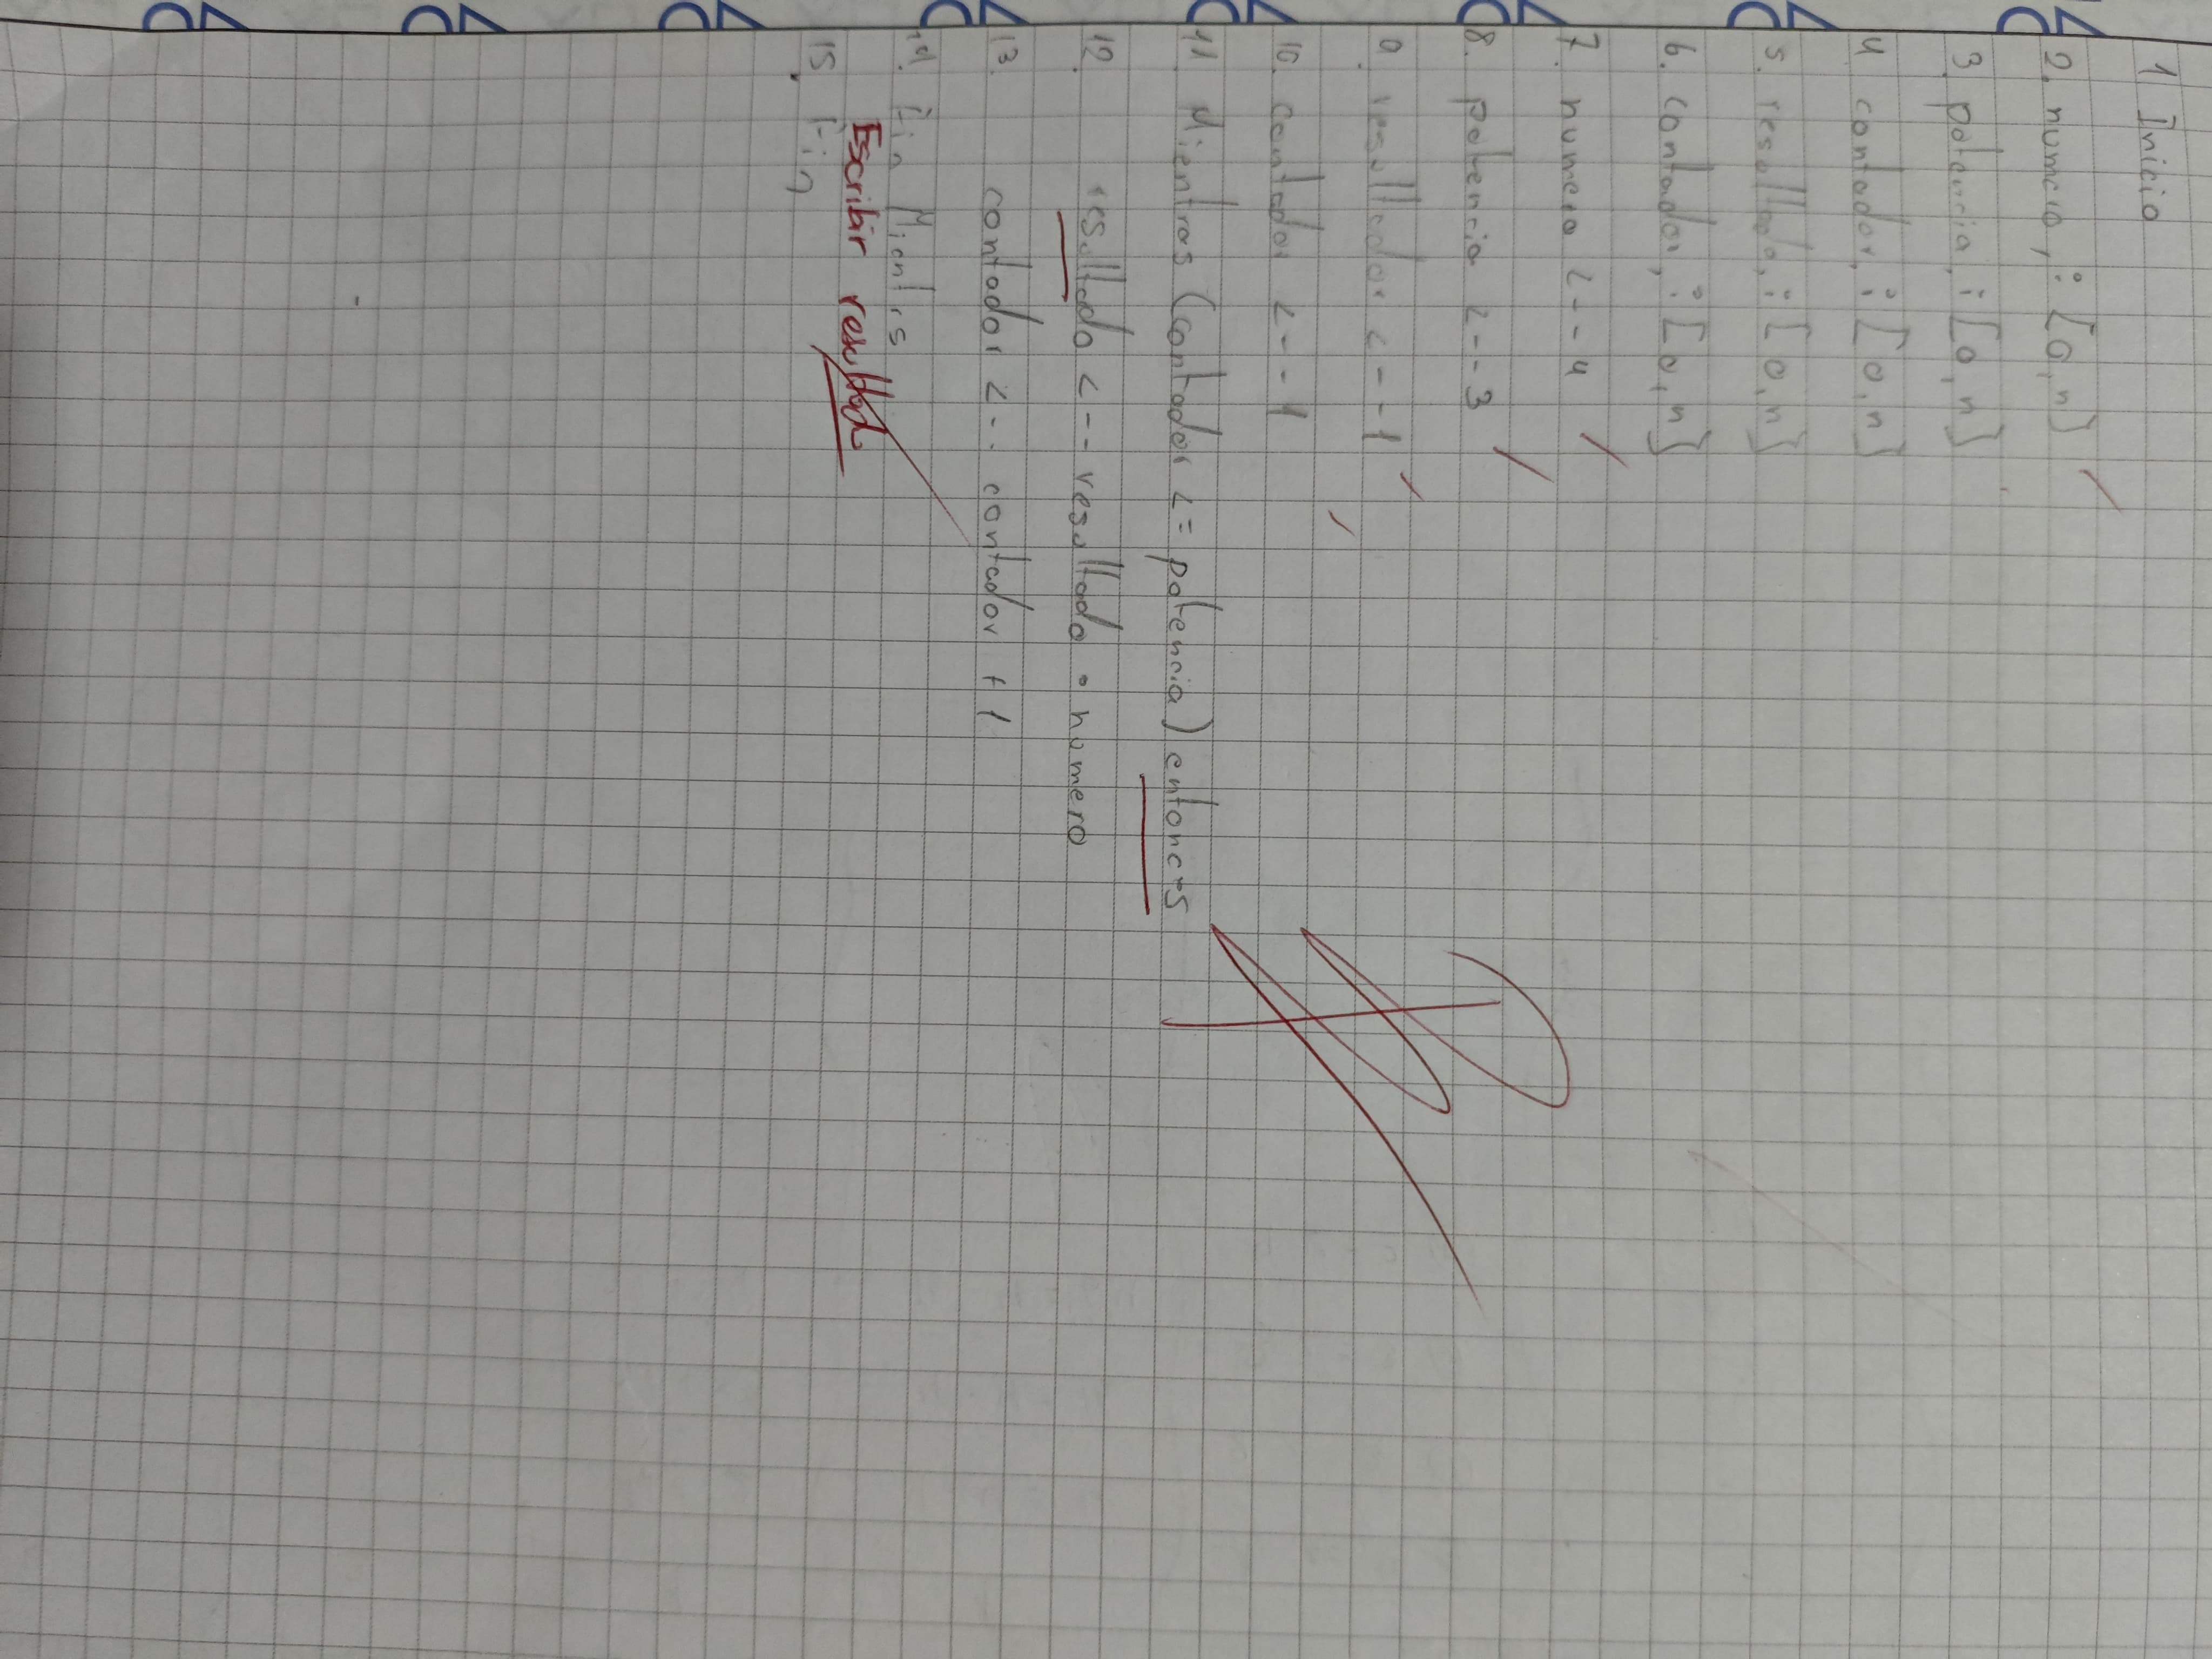 1 Inicio
2. numero, : [0,n]
3. potencia, : [0,n]
4 contador, : [0,n]
5. resultado, : [0,n]
6. contador, : [0,n]
7. numero <-- 4
8. potencia <-- 3
9. resultador <-- 1
10. contador <-- 1
11 Mientras (contador <= potencia) entonces
12. resultado <-- resultado • numero
13. contador <-- contador + 1
14. Fin Mientrs
Escribir resultad
15. Fin